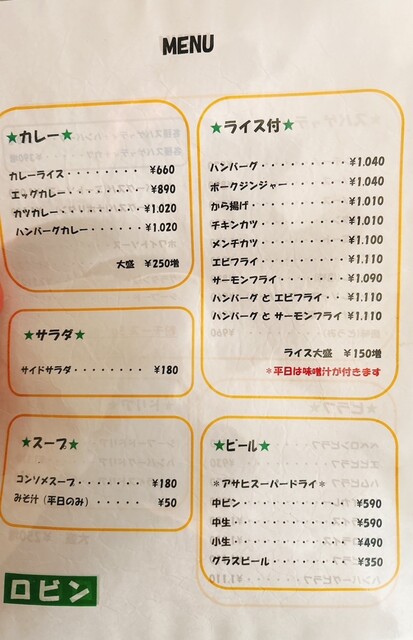 MENU
★カレー★
カレーライス・・・・・・・・¥660
エッグカレー・・・・・・・・¥890
カツカレー・・・・・・・・¥1.020
ハンバーグカレー・・・・・¥1.020
大盛 ¥250増
★サラダ★
サイドサラダ・・・・・・・¥180
★スープ★
コンソメスープ・・・・・・¥180
みそ汁（平日のみ）・・・・・¥50
ロビン
★ライス付★
ハンバーグ・・・・・・・・・¥1.040
ポークジンジャー・・・・・・¥1.040
から揚げ・・・・・・・・・・¥1.010
チキンカツ・・・・・・・・・¥1.010
メンチカツ・・・・・・・・・¥1.100
エビフライ・・・・・・・・・¥1.110
サーモンフライ・・・・・・・¥1.090
ハンバーグ と エビフライ・・¥1.110
ハンバーグ と サーモンフライ ¥1.110
ライス大盛 ¥150増
*平日は味噌汁が付きます
★ビール★
*アサヒスーパードライ*
中ビン・・・・・・・・・・・¥590
中生・・・・・・・・・・・・¥590
小生・・・・・・・・・・・・¥490
グラスビール・・・・・・・・¥350